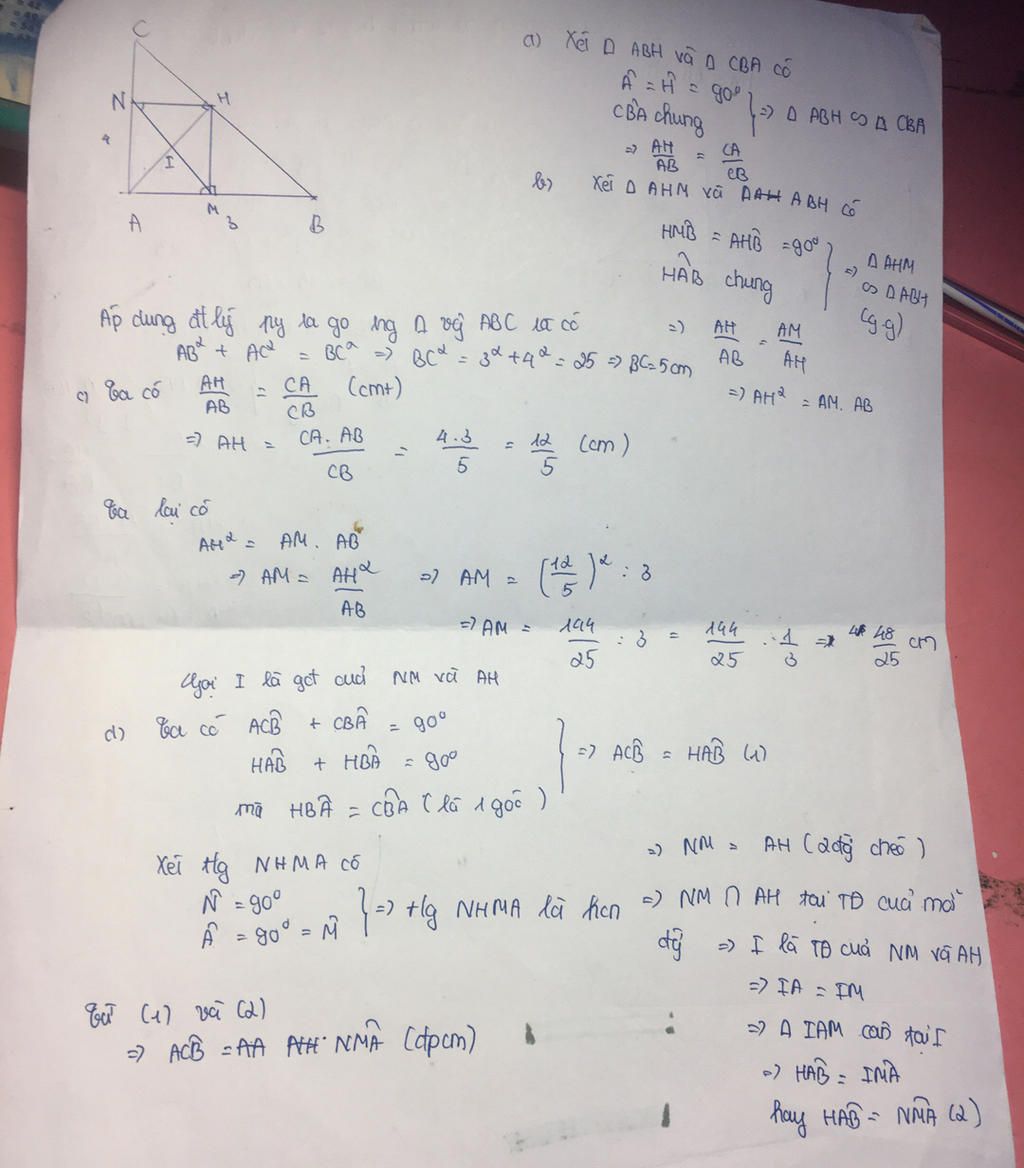 C
N
H
4
I
A
M
3
B
a) Xét Δ ABH và Δ CBA có
Â = Ĥ = 90°
CB̂A chung
=> Δ ABH ∽ Δ CBA
=> AH/AB = CA/CB
b) Xét Δ AHM và ΔAH ABH có
HM̂B = AĤB = 90°
HÂB chung
=> Δ AHM
∽ Δ ABH
(g.g)
=> AH/AB = AM/AH
=> AH² = AM. AB
Áp dụng đ lý py ta go tng Δ vg ABC ta có
AB² + AC² = BC² => BC² = 3² + 4² = 25 => BC = 5 cm
c) Ta có AH/AB = CA/CB (cmt)
=> AH = CA. AB/CB = 4.3/5 = 12/5 (cm)
Ta lại có
AH² = AM. AB
=> AM = AH²/AB => AM = (12/5)² : 3
=> AM = 144/25 : 3 = 144/25 . 1/3 => 48/25 cm
Gọi I là gđ cuả NM và AH
d) Ta có AĈB + CB̂A = 90°
HÂB + HB̂A = 90°
mà HB̂A = CB̂A (là 1 góc)
=> AĈB = HÂB (1)
Xét tg NHMA có
N̂ = 90°
Â = 90° = M̂
=> tg NHMA là hcn
=> NM = AH (2 đg chéo)
=> NM ∩ AH tại TĐ cuả mỗi
đg => I là TĐ cuả NM và AH
=> IA = IM
=> Δ IAM cân tại I
=> HÂB = IM̂A
hay HÂB = NM̂A (2)
Từ (1) và (2)
=> AĈB = AA AH NM̂A (đpcm)